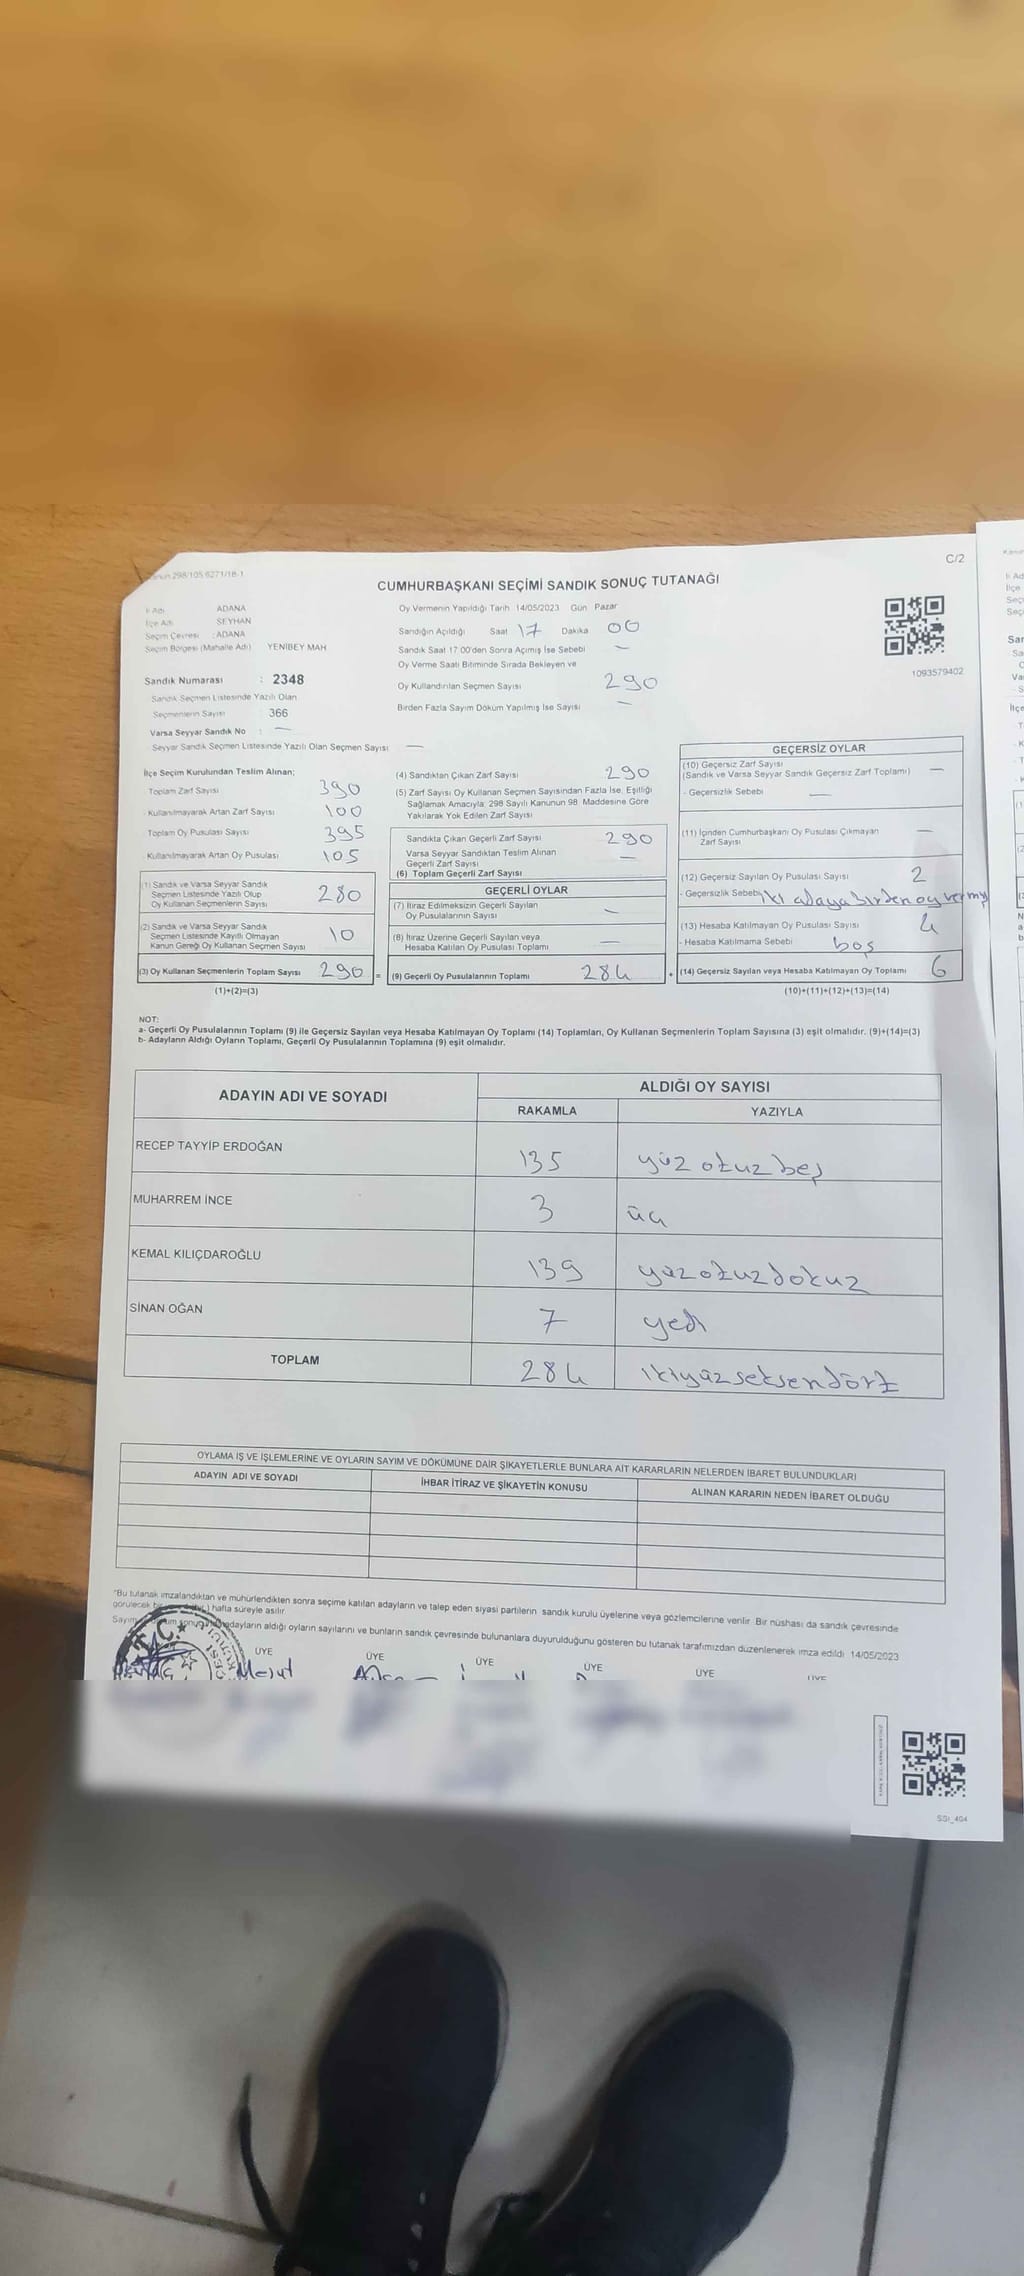 Kanun 298/105 6271/18-1
C/2
CUMHURBAŞKANI SEÇİMİ SANDIK SONUÇ TUTANAĞI
İl Adı ADANA
İlçe Adı SEYHAN
Seçim Çevresi : ADANA
Seçim Bölgesi (Mahalle Adı) YENİBEY MAH
Sandık Numarası : 2348
Sandık Seçmen Listesinde Yazılı Olan
Seçmenlerin Sayısı : 366
Varsa Seyyar Sandık No : —
Seyyar Sandık Seçmen Listesinde Yazılı Olan Seçmen Sayısı —
Oy Vermenin Yapıldığı Tarih 14/05/2023 Gün Pazar
Sandığın Açıldığı Saat 17 Dakika 00
Sandık Saat 17:00'den Sonra Açımış İse Sebebi —
Oy Verme Saati Bitiminde Sırada Bekleyen ve
Oy Kullandırılan Seçmen Sayısı 290
Birden Fazla Sayım Döküm Yapılmış İse Sayısı —
1093579402
İlçe Seçim Kurulundan Teslim Alınan;
Toplam Zarf Sayısı 390
Kullanılmayarak Artan Zarf Sayısı 100
Toplam Oy Pusulası Sayısı 395
Kullanılmayarak Artan Oy Pusulası 105
(1) Sandık ve Varsa Seyyar Sandık
Seçmen Listesinde Yazılı Olup
Oy Kullanan Seçmenlerin Sayısı 280
(2) Sandık ve Varsa Seyyar Sandık
Seçmen Listesinde Kayıtlı Olmayan
Kanun Gereği Oy Kullanan Seçmen Sayısı 10
(3) Oy Kullanan Seçmenlerin Toplam Sayısı 290 =
(1)+(2)=(3)
(4) Sandıktan Çıkan Zarf Sayısı 290
(5) Zarf Sayısı Oy Kullanan Seçmen Sayısından Fazla İse, Eşitliği
Sağlamak Amacıyla; 298 Sayılı Kanunun 98. Maddesine Göre
Yakılarak Yok Edilen Zarf Sayısı
Sandıkta Çıkan Geçerli Zarf Sayısı 290
Varsa Seyyar Sandıktan Teslim Alınan
Geçerli Zarf Sayısı —
(6) Toplam Geçerli Zarf Sayısı
GEÇERLİ OYLAR
(7) İtiraz Edilmeksizin Geçerli Sayılan
Oy Pusulalarının Sayısı —
(8) İtiraz Üzerine Geçerli Sayılan veya
Hesaba Katılan Oy Pusulası Toplamı —
(9) Geçerli Oy Pusulalarının Toplamı 284 +
GEÇERSİZ OYLAR
(10) Geçersiz Zarf Sayısı
(Sandık ve Varsa Seyyar Sandık Geçersiz Zarf Toplamı) —
- Geçersizlik Sebebi —
(11) İçinden Cumhurbaşkanı Oy Pusulası Çıkmayan
Zarf Sayısı —
(12) Geçersiz Sayılan Oy Pusulası Sayısı 2
- Geçersizlik Sebebi iki adaya birden oy vermş
(13) Hesaba Katılmayan Oy Pusulası Sayısı 4
- Hesaba Katılmama Sebebi boş
(14) Geçersiz Sayılan veya Hesaba Katılmayan Oy Toplamı 6
(10)+(11)+(12)+(13)=(14)
NOT:
a- Geçerli Oy Pusulalarının Toplamı (9) ile Geçersiz Sayılan veya Hesaba Katılmayan Oy Toplamı (14) Toplamları, Oy Kullanan Seçmenlerin Toplam Sayısına (3) eşit olmalıdır. (9)+(14)=(3)
b- Adayların Aldığı Oyların Toplamı, Geçerli Oy Pusulalarının Toplamına (9) eşit olmalıdır.
ADAYIN ADI VE SOYADI ALDIĞI OY SAYISI
RAKAMLA YAZIYLA
RECEP TAYYİP ERDOĞAN 135 yüz otuz beş
MUHARREM İNCE 3 üç
KEMAL KILIÇDAROĞLU 139 yüzotuzdokuz
SİNAN OĞAN 7 yedi
TOPLAM 284 ikiyüzseksendört
OYLAMA İŞ VE İŞLEMLERİNE VE OYLARIN SAYIM VE DÖKÜMÜNE DAİR ŞİKAYETLERLE BUNLARA AİT KARARLARIN NELERDEN İBARET BULUNDUKLARI
ADAYIN ADI VE SOYADI İHBAR İTİRAZ VE ŞİKAYETİN KONUSU ALINAN KARARIN NEDEN İBARET OLDUĞU
"Bu tutanak imzalandıktan ve mühürlendikten sonra seçime katılan adayların ve talep eden siyasi partilerin sandık kurulu üyelerine veya gözlemcilerine verilir. Bir nüshası da sandık çevresinde
görülecek bir hafta süreyle asılır.
Sayım sonunda adayların aldığı oyların sayılarını ve bunların sandık çevresinde bulunanlara duyurulduğunu gösteren bu tutanak tarafımızdan düzenlenerek imza edildi 14/05/2023
T.C.
ÜYE ÜYE ÜYE ÜYE ÜYE ÜYE
Mesut
SSI_404